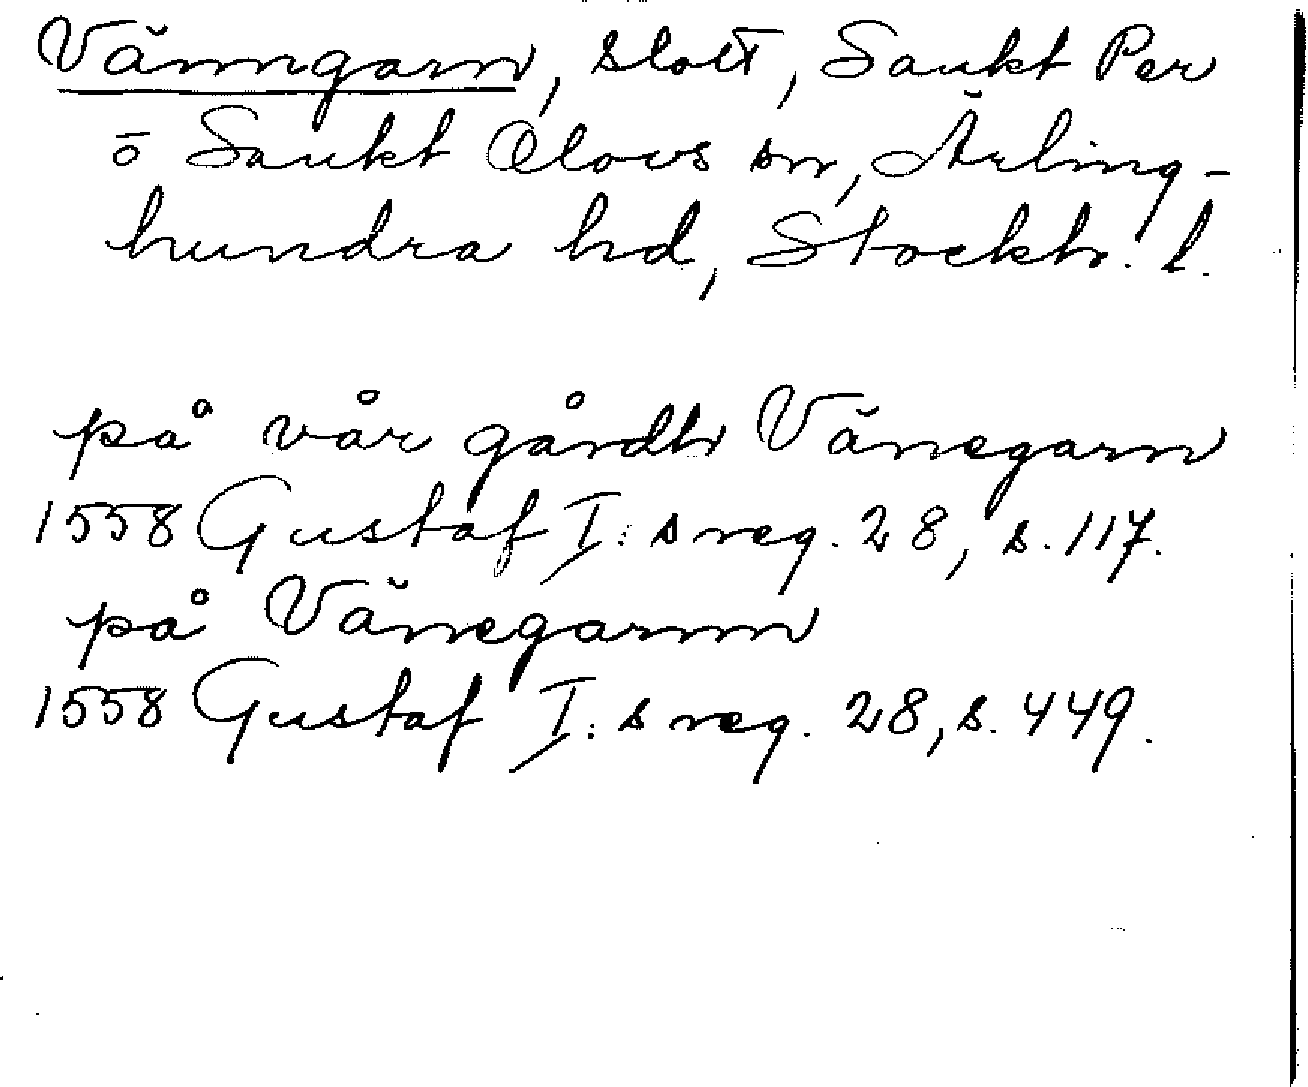 Vänngarn, slott, Sankt Per
o Sankt Olovs snr, Ärling-
hundra hd, Stockh. l.
på vår gårdh Vänegarn
1558 Gustaf I: s reg. 28, s. 117.
på Vänegarnn
1558 Gustaf I: s reg. 28, s. 449.